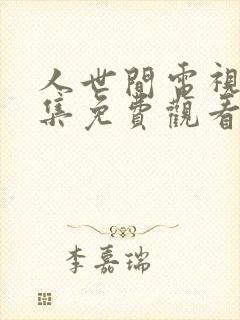 人世間電視
集免費觀看
李嘉瑞